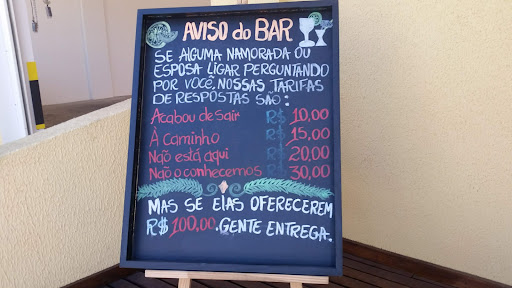 AVISO do BAR
SE ALGUMA NAMORADA OU
ESPOSA LIGAR PERGUNTANDO
POR VOCÊ, NOSSAS TARIFAS
DE RESPOSTAS SÃO:
Acabou de sair R$ 10,00
À Caminho R$ 15,00
Não está aqui R$ 20,00
Não o conhecemos R$ 30,00
MAS SE ElAS OFERECEREM
R$ 100,00. GENTE ENTREGA.